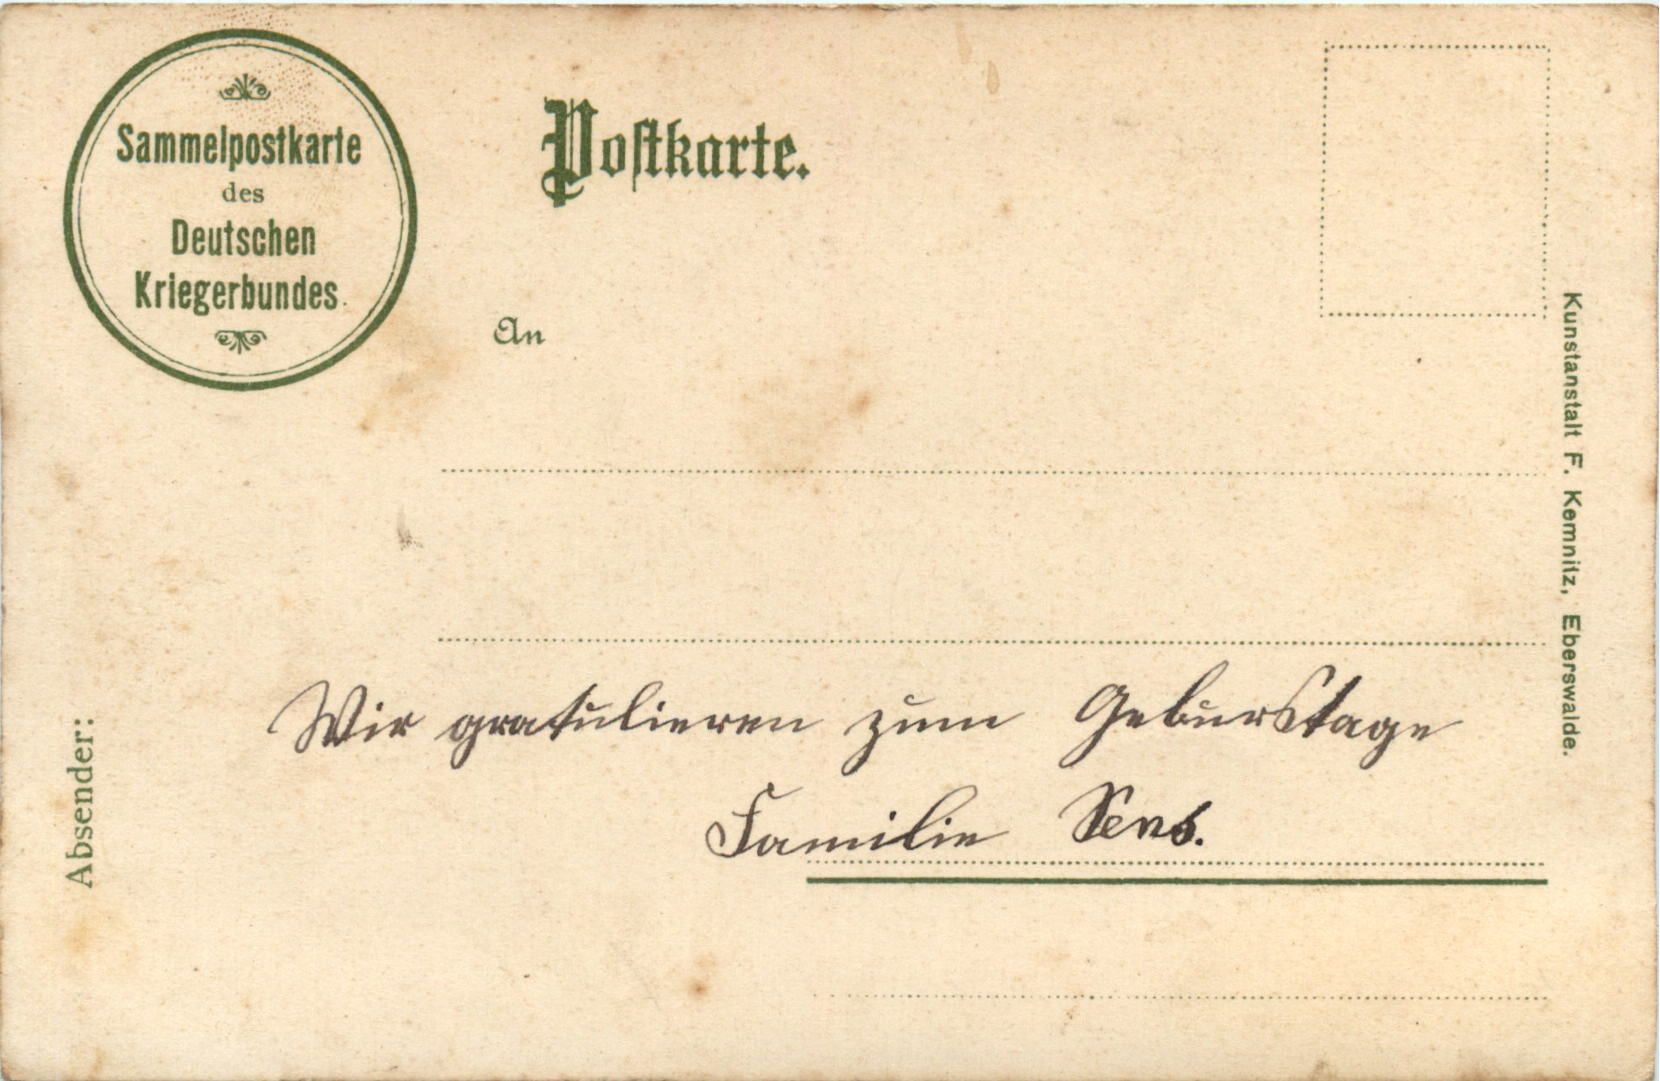 Sammelpostkarte
des
Deutschen
Kriegerbundes.
Postkarte.
An
Kunstanstalt F. Kemnitz, Eberswalde.
Absender:
Wir gratulieren zum Geburtstage
Familie Sens.